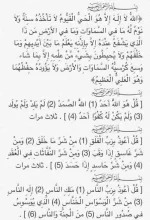 ﴿اللَّهُ لَا إِلَهَ إِلَّا هُوَ الْحَيُّ الْقَيُّومُ لَا تَأْخُذُهُ سِنَةٌ وَلَا
نَوْمٌ لَهُ مَا فِي السَّمَاوَاتِ وَمَا فِي الْأَرْضِ مَنْ ذَا
الَّذِي يَشْفَعُ عِنْدَهُ إِلَّا بِإِذْنِهِ يَعْلَمُ مَا بَيْنَ أَيْدِيهِمْ وَمَا
خَلْفَهُمْ وَلَا يُحِيطُونَ بِشَيْءٍ مِنْ عِلْمِهِ إِلَّا بِمَا شَاءَ
وَسِعَ كُرْسِيُّهُ السَّمَاوَاتِ وَالْأَرْضَ وَلَا يَئُودُهُ حِفْظُهُمَا
وَهُوَ الْعَلِيُّ الْعَظِيمُ﴾
﴿ قُلْ هُوَ اللَّهُ أَحَدٌ (1) اللَّهُ الصَّمَدُ (2) لَمْ يَلِدْ وَلَمْ يُولَدْ
(3) وَلَمْ يَكُنْ لَهُ كُفُوًا أَحَدٌ (4) ﴾ . ثلاث مرات
﴿ قُلْ أَعُوذُ بِرَبِّ الْفَلَقِ (1) مِنْ شَرِّ مَا خَلَقَ (2) وَمِنْ
شَرِّ غَاسِقٍ إِذَا وَقَبَ (3) وَمِنْ شَرِّ النَّفَّاثَاتِ فِي الْعُقَدِ
(4) وَمِنْ شَرِّ حَاسِدٍ إِذَا حَسَدَ (5) ﴾ . ثلاث مرات
﴿ قُلْ أَعُوذُ بِرَبِّ النَّاسِ (1) مَلِكِ النَّاسِ (2) إِلَهِ النَّاسِ
(3) مِنْ شَرِّ الْوَسْوَاسِ الْخَنَّاسِ (4) الَّذِي يُوَسْوِسُ
فِي صُدُورِ النَّاسِ (5) مِنَ الْجِنَّةِ وَالنَّاسِ (6) ﴾ .